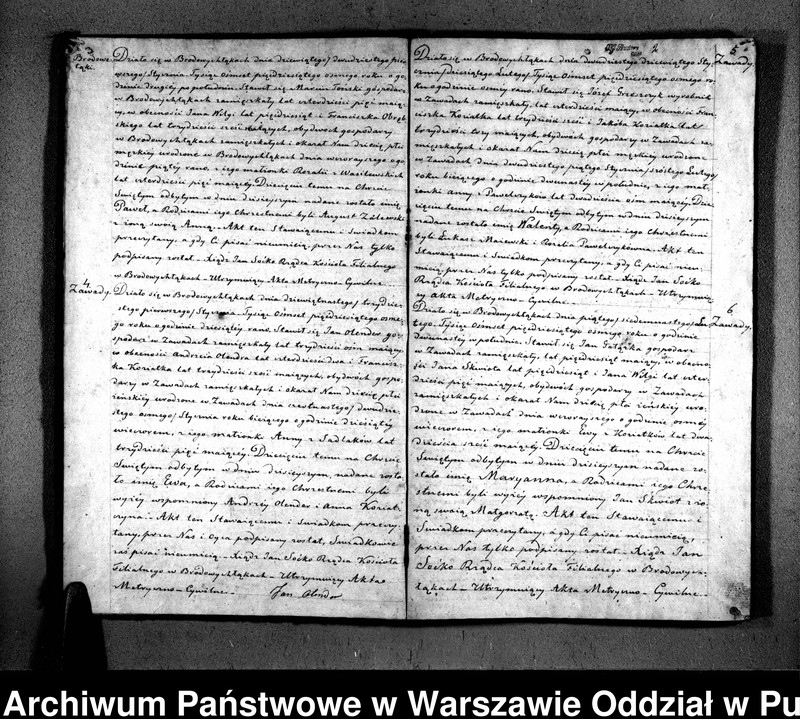 3.
Brodowe-
łąki.
Działo się w Brodowychłąkach dnia dziewiątego/dwudziestego pier-
wszego/Stycznia Tysiąc Ośmset pięćdziesiątego ósmego roku o go-
dzinie drugiéj po południu. Stawił się Marcin gospodarz
w Brodowychłąkach zamięszkały lat czterdzieści pięć mają-
cy, w obecności Jana Wilgi lat pięćdziesiąt i Franciszka
lat trzydzieści sześć mających, obydwoch gospodarzy
w Brodowychłąkach zamięszkałych i okazał Nam dziecię płci
męzkiéj urodzone w Brodowychłąkach dnia wczorayszego o go-
dzinie piątéj rano, z iego małżonki Rozalii z Wasilewskich
lat czterdzieści pięć maiącéy. Dziecięciu temu na Chrzcie
Świętym odbytym w dniu dzisieyszym nadane zostało imię
Paweł, a Rodzicami iego Chrzestnemi byli August Zalewski
z żoną swoią Anną. Akt ten Stawaiącemu i Świadkom
przeczytany, a gdy Ci pisać nieumieią, przez Nas tylko
podpisany został. Xiądz Jan Sońko Rządca Kościoła Filialnego
w Brodowychłąkach Utrzymuiący Akta Metryczno-Cywilne.
4.
Zawady.
Działo się w Brodowychłąkach dnia dziewiętnastego/trzydzie-
stego pierwszego/Stycznia Tysiąc Ośmset pięćdziesiątego osme-
go roku o godzinie dziesiątéj rano. Stawił się Jan Olender gos-
podarz w Zawadach zamięszkały lat trzydzieści ośm maiący,
w obecności Andrzeia Olendra lat czterdzieści dwa i Francisz-
ka Koziatka lat trzydzieści sześć maiących, obydwoch gospo-
darzy w Zawadach zamięszkałych i okazał Nam dziecię płci
żeńskiéj urodzone w Zawadach dnia czternastego/dwudzie-
stego szóstego/Stycznia roku bieżącego o godzinie dziesiątéj
wieczorem, z iego małżonki Anny z Sadlaków lat
trzydzieści pięć maiącéy. Dziecięciu temu na Chrzcie
Świętym odbytym w dniu dzisieyszym, nadane zosta-
ło imię Ewa, a Rodzicami iego Chrzestnemi byli
wyżéj wspomniony Andrzéj Olender i Anna Koziat-
czyna. Akt ten Stawaiącemu i Świadkom przeczy-
tany, przez Nas i Oyca podpisany został, Świadkowie
zaś pisać nieumieią. Xiądz Jan Sońko Rządca Kościoła
Filialnego w Brodowychłąkach Utrzymuiący Akta
Metryczno-Cywilne. Jan Olender
5.
Zawady.
Działo się w Brodowychłąkach dnia dwudziestego dziewiątego Sty-
cznia/dziesiątego Lutego/Tysiąc Ośmset pięćdziesiątego osmego ro-
ku o godzinie osméj rano. Stawił się Józef Grzeszczyk wyrobnik
w Zawadach zamięszkały, lat czterdzieści maiący, w obecności Fran-
ciszka Koziatka lat trzydzieści sześć i Jakóba Koziatka lat
trzydzieści trzy maiących, obydwoch gospodarzy w Zawadach za-
mięszkałych i okazał Nam dziecię płci męzkiéj urodzone
w Zawadach dnia dwudziestego piątego Stycznia/szóstego Lutego/
roku bieżącego o godzinie dwunastéj w południe, z iego mał-
żonki Anny z Pawełczyków lat dwadzieścia ośm maiącéy. Dzie-
cięciu temu na Chrzcie Świętym odbytym w dniu dzisieyszym
nadane zostało imię Walenty, a Rodzicami iego Chrzestnemi
byli Łukasz Maiewski i Rozalia Pawełczykówna. Akt ten
Stawaiącemu i Świadkom przeczytany, a gdy Ci pisać nieu-
mieią, przez Nas tylko podpisany został. Xiądz Jan Sońko
Rządca Kościoła Filialnego w Brodowychłąkach Utrzymuią-
cy Akta Metryczno-Cywilne.
6.
Zawady.
Działo się w Brodowychłąkach dnia piątego/siedemnastego/Lu-
tego Tysiąc Ośmset pięćdziesiątego osmego roku o godzinie
dwunastéj w południe. Stawił się Jan gospodarz
w Zawadach zamięszkały, lat pięćdziesiąt maiący, w obecno-
ści Jana Skwiota lat pięćdziesiąt i Jana Wilgi lat czter-
dzieści pięć maiących, obydwoch gospodarzy w Zawadach
zamięszkałych i okazał Nam dziecię płci żeńskiéj uro-
dzone w Zawadach dnia wczorayszego o godzinie osméj
wieczorem, z iego małżonki Ewy z Koziatków lat dwa-
dzieścia sześć maiącéy. Dziecięciu temu na Chrzcie
Świętym odbytym w dniu dzisieyszym nadane zo-
stało imię Maryanna, a Rodzicami iego Chrze-
stnemi byli wyżéj wspomniony Jan Skwiot z żo-
ną swoią Małgorzatą. Akt ten Stawaiącemu i
Świadkom przeczytany, a gdy Ci pisać nieumieią,
przez Nas tylko podpisany został. Xiądz Jan
Sońko Rządca Kościoła Filialnego w Brodowych-
łąkach Utrzymuiący Akta Metryczno-Cywilne.
Archiwum Państwowe w Warszawie Oddział w Pu